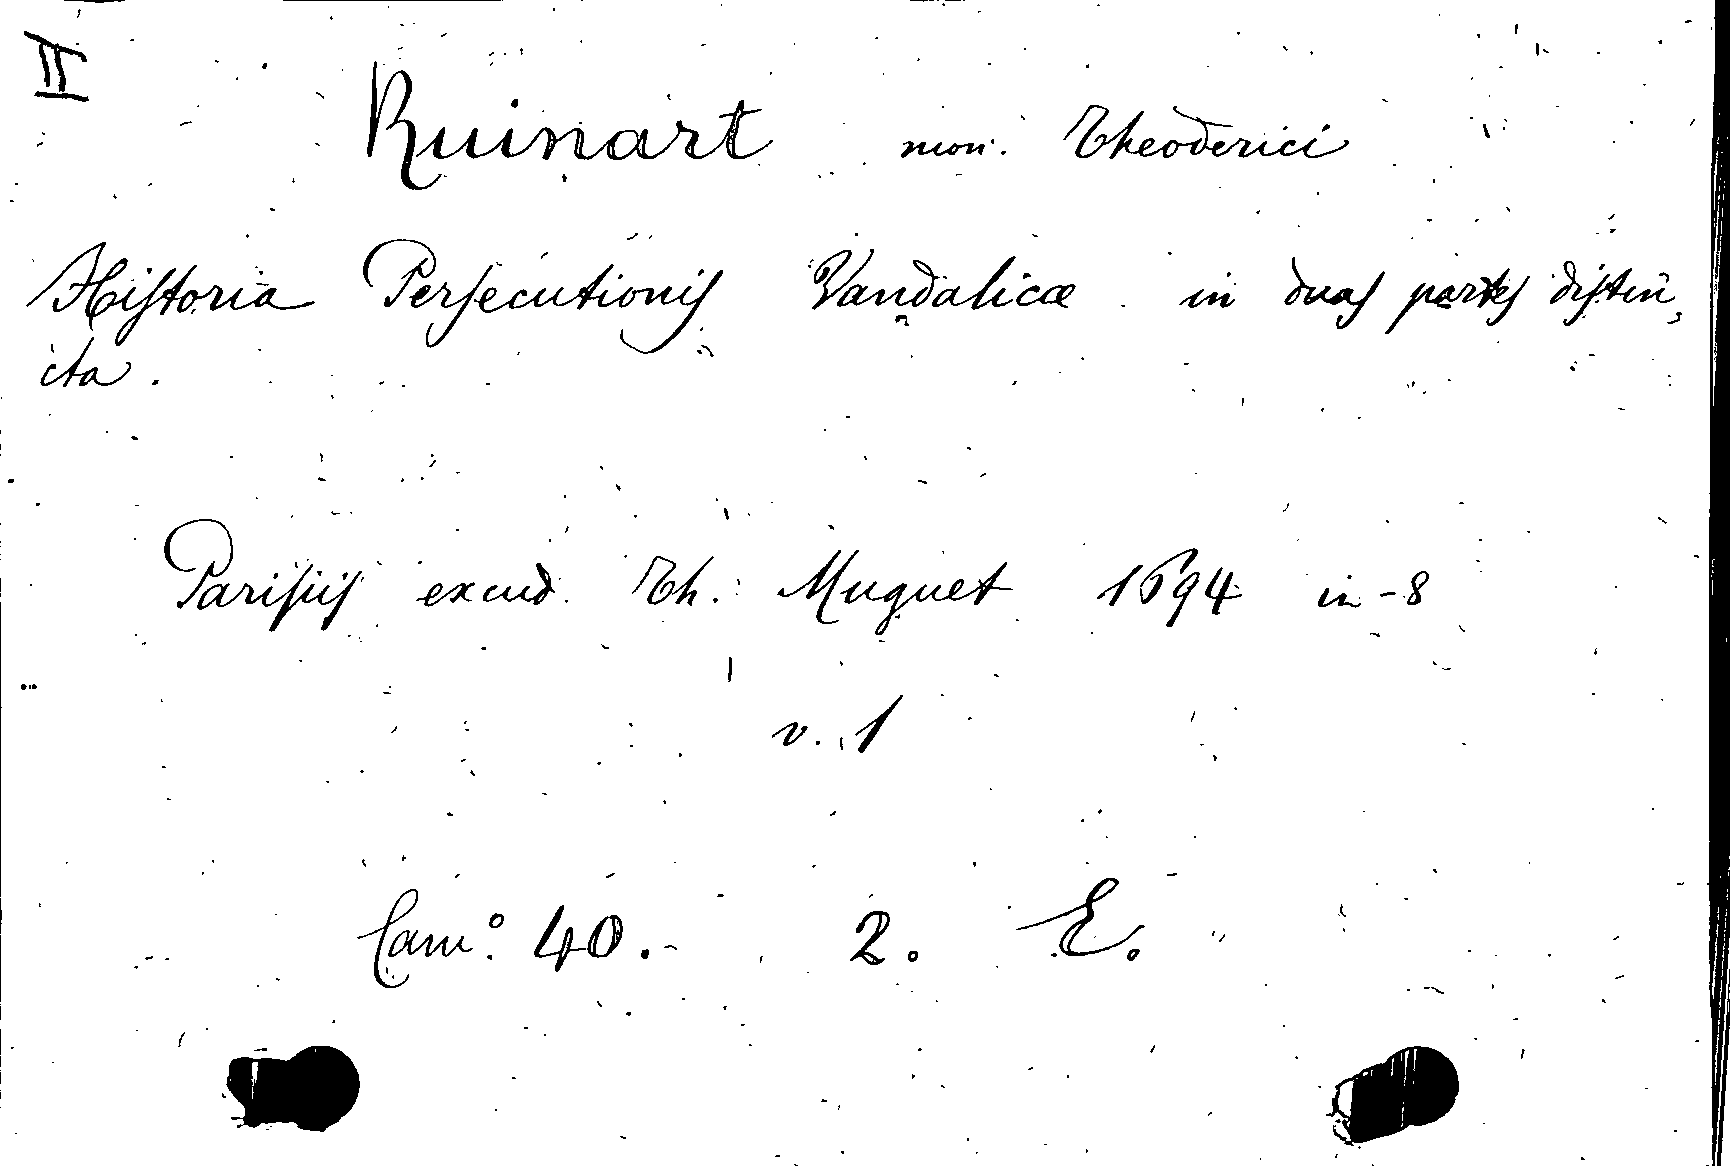 II
Ruinart mon. Theoderici
Hiſtoria Perſecutionis Vandalicæ in duas partes diſtin,
cta.
Pariſiis excud. Th. Muguet 1694 in-8
v. 1
Cam.° 40. 2. E.